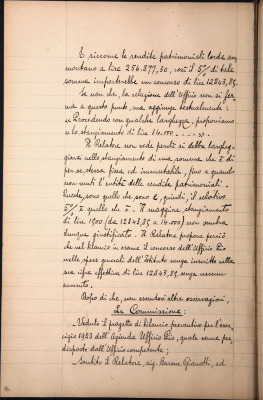 E siccome le rendite patrimoniali lorde am
montano a lire 256.877,30, così il 5% di tale
somma importerebbe un concorso di lire 12843,85.
Se non che, la relazione dell'Ufficio non si fer
ma a questo punto, ma aggiunge testualmente:
"Provvedendo con qualche larghezza, proponiamo
uno stanziamento di lire 14.000 ---- "
Il Relatore non vede perché si debba larghег
giare nello stanziamento di una somma che è di
per se stessa fissa ed immutabile, fino a quando
non muti l'entità delle rendite patrimoniali.
Queste, sono quelle che sono e, quindi, il relativo
5% è quello che è. Il maggiore stanziamento
di lire 1500 (da 12843,85 a 14.000) non sembra
dunque giustificato. Il Relatore propone perciò
che nel bilancio in esame il concorso dell'Ufficio Pio
nelle spese generali dell'Istituto venga inscritto nella
sua cifra effettiva di lire 12843,85, senza nessun
aumento.
Dopo di che, non essendovi altre osservazioni,
La Commissione:
- Veduto il progetto di bilancio preventivo per l'eser
cizio 1923 dell'Azienda Ufficio Pio, quale venne pre
disposto dall'Ufficio competente;
- Sentito il Relatore, sig. Barone Gianotti, ed